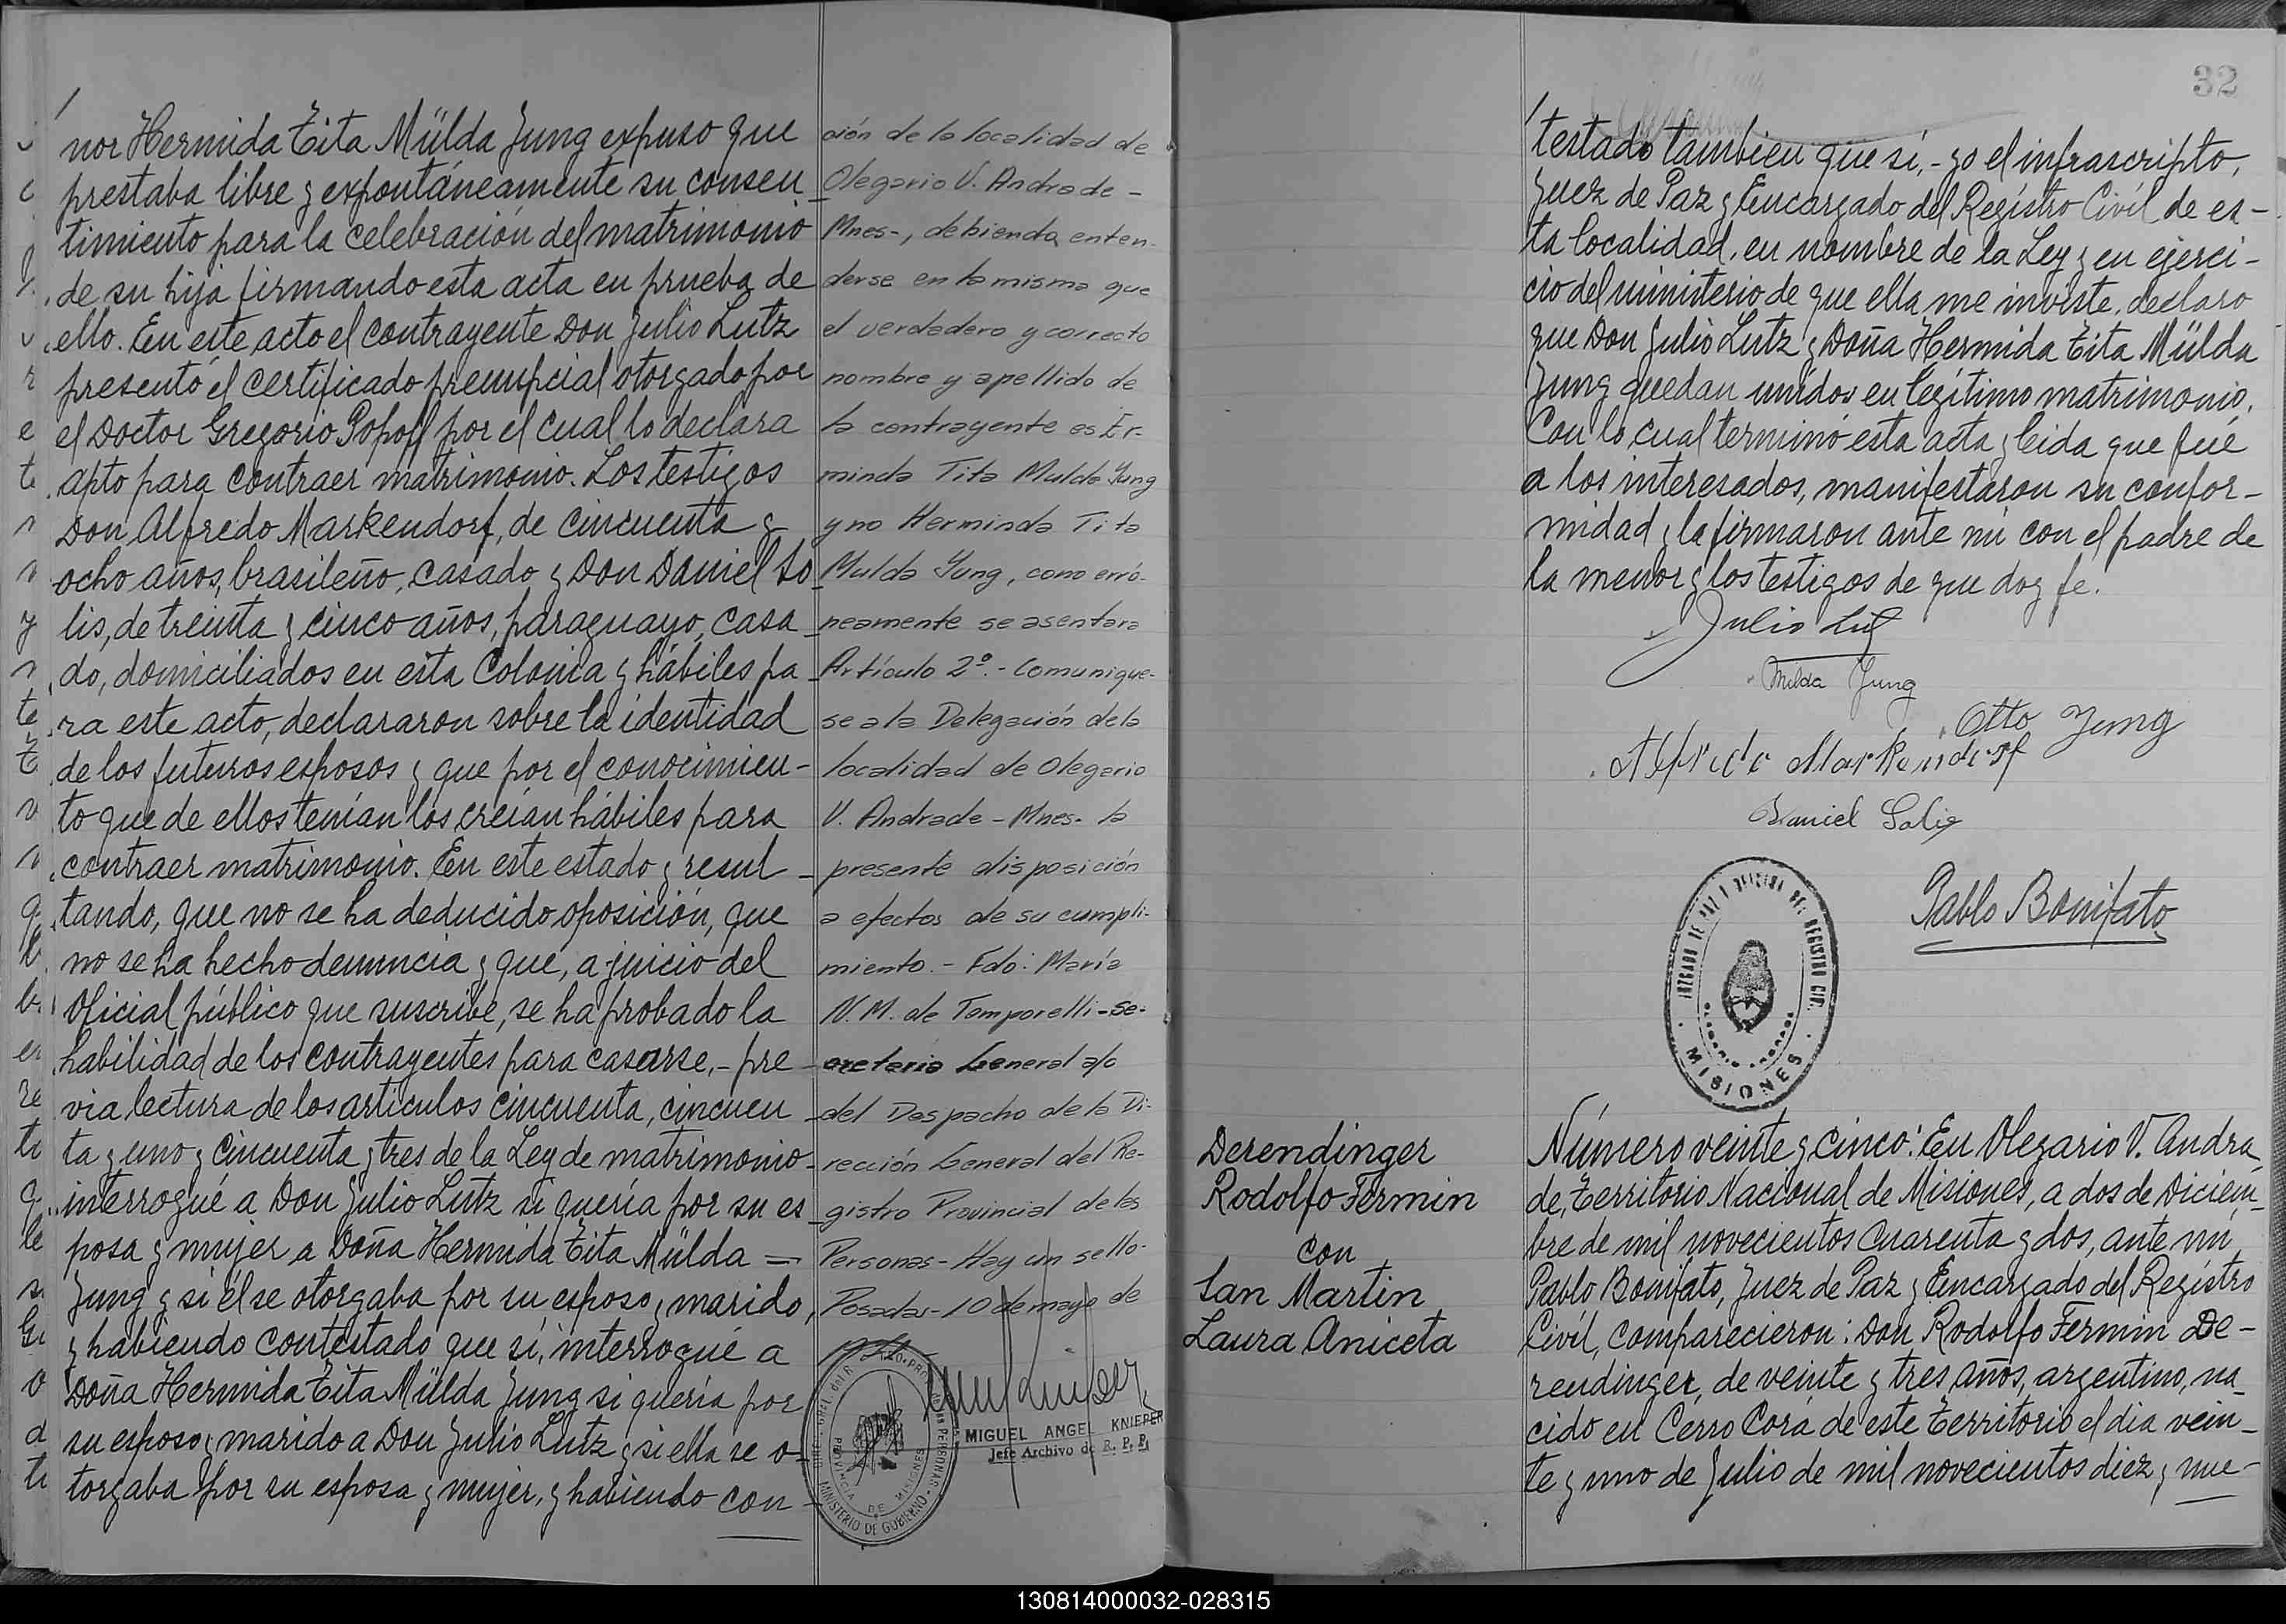 nor Hermida Tita Mülda Jung expuso que
prestaba libre y expontáneamente su consen_
timiento para la celebración del matrimonio
de su hija firmando esta acta en prueba de
ello. En este acto el contrayente Don Julio Lutz
presentó el certificado prenupcial otorgado por
el Doctor Gregorio Popoff por el cual lo declara
apto para contraer matrimonio. Los testigos
Don Alfredo Markendorf, de cincuenta y
ocho años, brasileño, casado y Don Daniel So_
lis, de treinta y cinco años, paraguayo, casa_
do, domiciliados en esta Colonia y hábiles pa_
ra este acto, declararon sobre la identidad
de los futuros esposos y que por el conocimien-
to que de ellos tenían los creían hábiles para
contraer matrimonio. En este estado y resul_
tando, que no se ha deducido oposición, que
no se ha hecho denuncia y que, a juicio del
Oficial público que suscribe, se ha probado la
habilidad de los contrayentes para casarse,- pre_
via lectura de los artículos cincuenta, cincuen_
ta y uno y cincuenta y tres de la Ley de matrimonio
interrogué a Don Julio Lutz si quería por su es_
posa y mujer a Doña Hermida Tita Mülda =
Jung y si él se otorgaba por su esposo y marido,
y habiendo contestado que si, interrogué a
Doña Hermida Tita Mülda Jung si quería por
su esposo y marido a Don Julio Lutz y si ella se o-
torgaba por su esposa y mujer, y habiendo con-
ción de la localidad de
Olegario V. Andrade -
Mnes-, debiendo enten-
derse en la misma que
el verdadero y correcto
nombre y apellido de
la contrayente es Er-
minda Tita Mulda Yung
y no Herminda Tita
Mulda Yung, como erró-
neamente se asentara
Artículo 2º.- Comunique-
se a la Delegación de la
localidad de Olegario
V. Andrade - Mnes- la
presente disposición
a efectos de su cumpli-
miento.- Fdo: María
N. M. de Tamporelli - Se-
cretaria General a/c
del Despacho de la Di-
rección General del Re-
gistro Provincial de las
Personas - Hay un sello-
Posadas - 10 de mayo de
MIGUEL ANGEL KNIEPER
Jefe Archivo de R. P. P.
MINISTERIO DE GOBIERNO
PROVINCIA DE MISIONES
32
testado también que si,- yo el infrascripto,
Juez de Paz y Encargado del Registro Civíl de es-
ta localidad, en nombre de la Ley y en ejerci-
cio del ministerio de que ella me inviste, declaro
que Don Julio Lutz y Doña Hermida Tita Mülda
Jung quedan unidos en legítimo matrimonio.
Con lo cual terminó esta acta y leida que fué
a los interesados, manifestaron su confor-
midad y la firmaron ante mi con el padre de
la menor y los testigos de que doy fe.
Julio Lutz
Milda Jung
Otto Jung
Alfredo Markendorf
Daniel Solis
Pablo Bonifato
JUZGADO DE PAZ Y OFICINA DEL REGISTRO CIV.
MISIONES
Derendinger
Rodolfo Fermin
con
San Martin
Laura Aniceta
Número veinte y cinco: En Olegario V. Andra_
de, Territorio Nacional de Misiones, a dos de Diciem_
bre de mil novecientos cuarenta y dos, ante mi
Pablo Bonifato, Juez de Paz y Encargado del Registro
Civíl, comparecieron: Don Rodolfo Fermin De-
rendinger, de veinte y tres años, argentino, na_
cido en Cerro Corá de este Territorio el día vein_
te y uno de Julio de mil novecientos diez y nue-
130814000032-028315